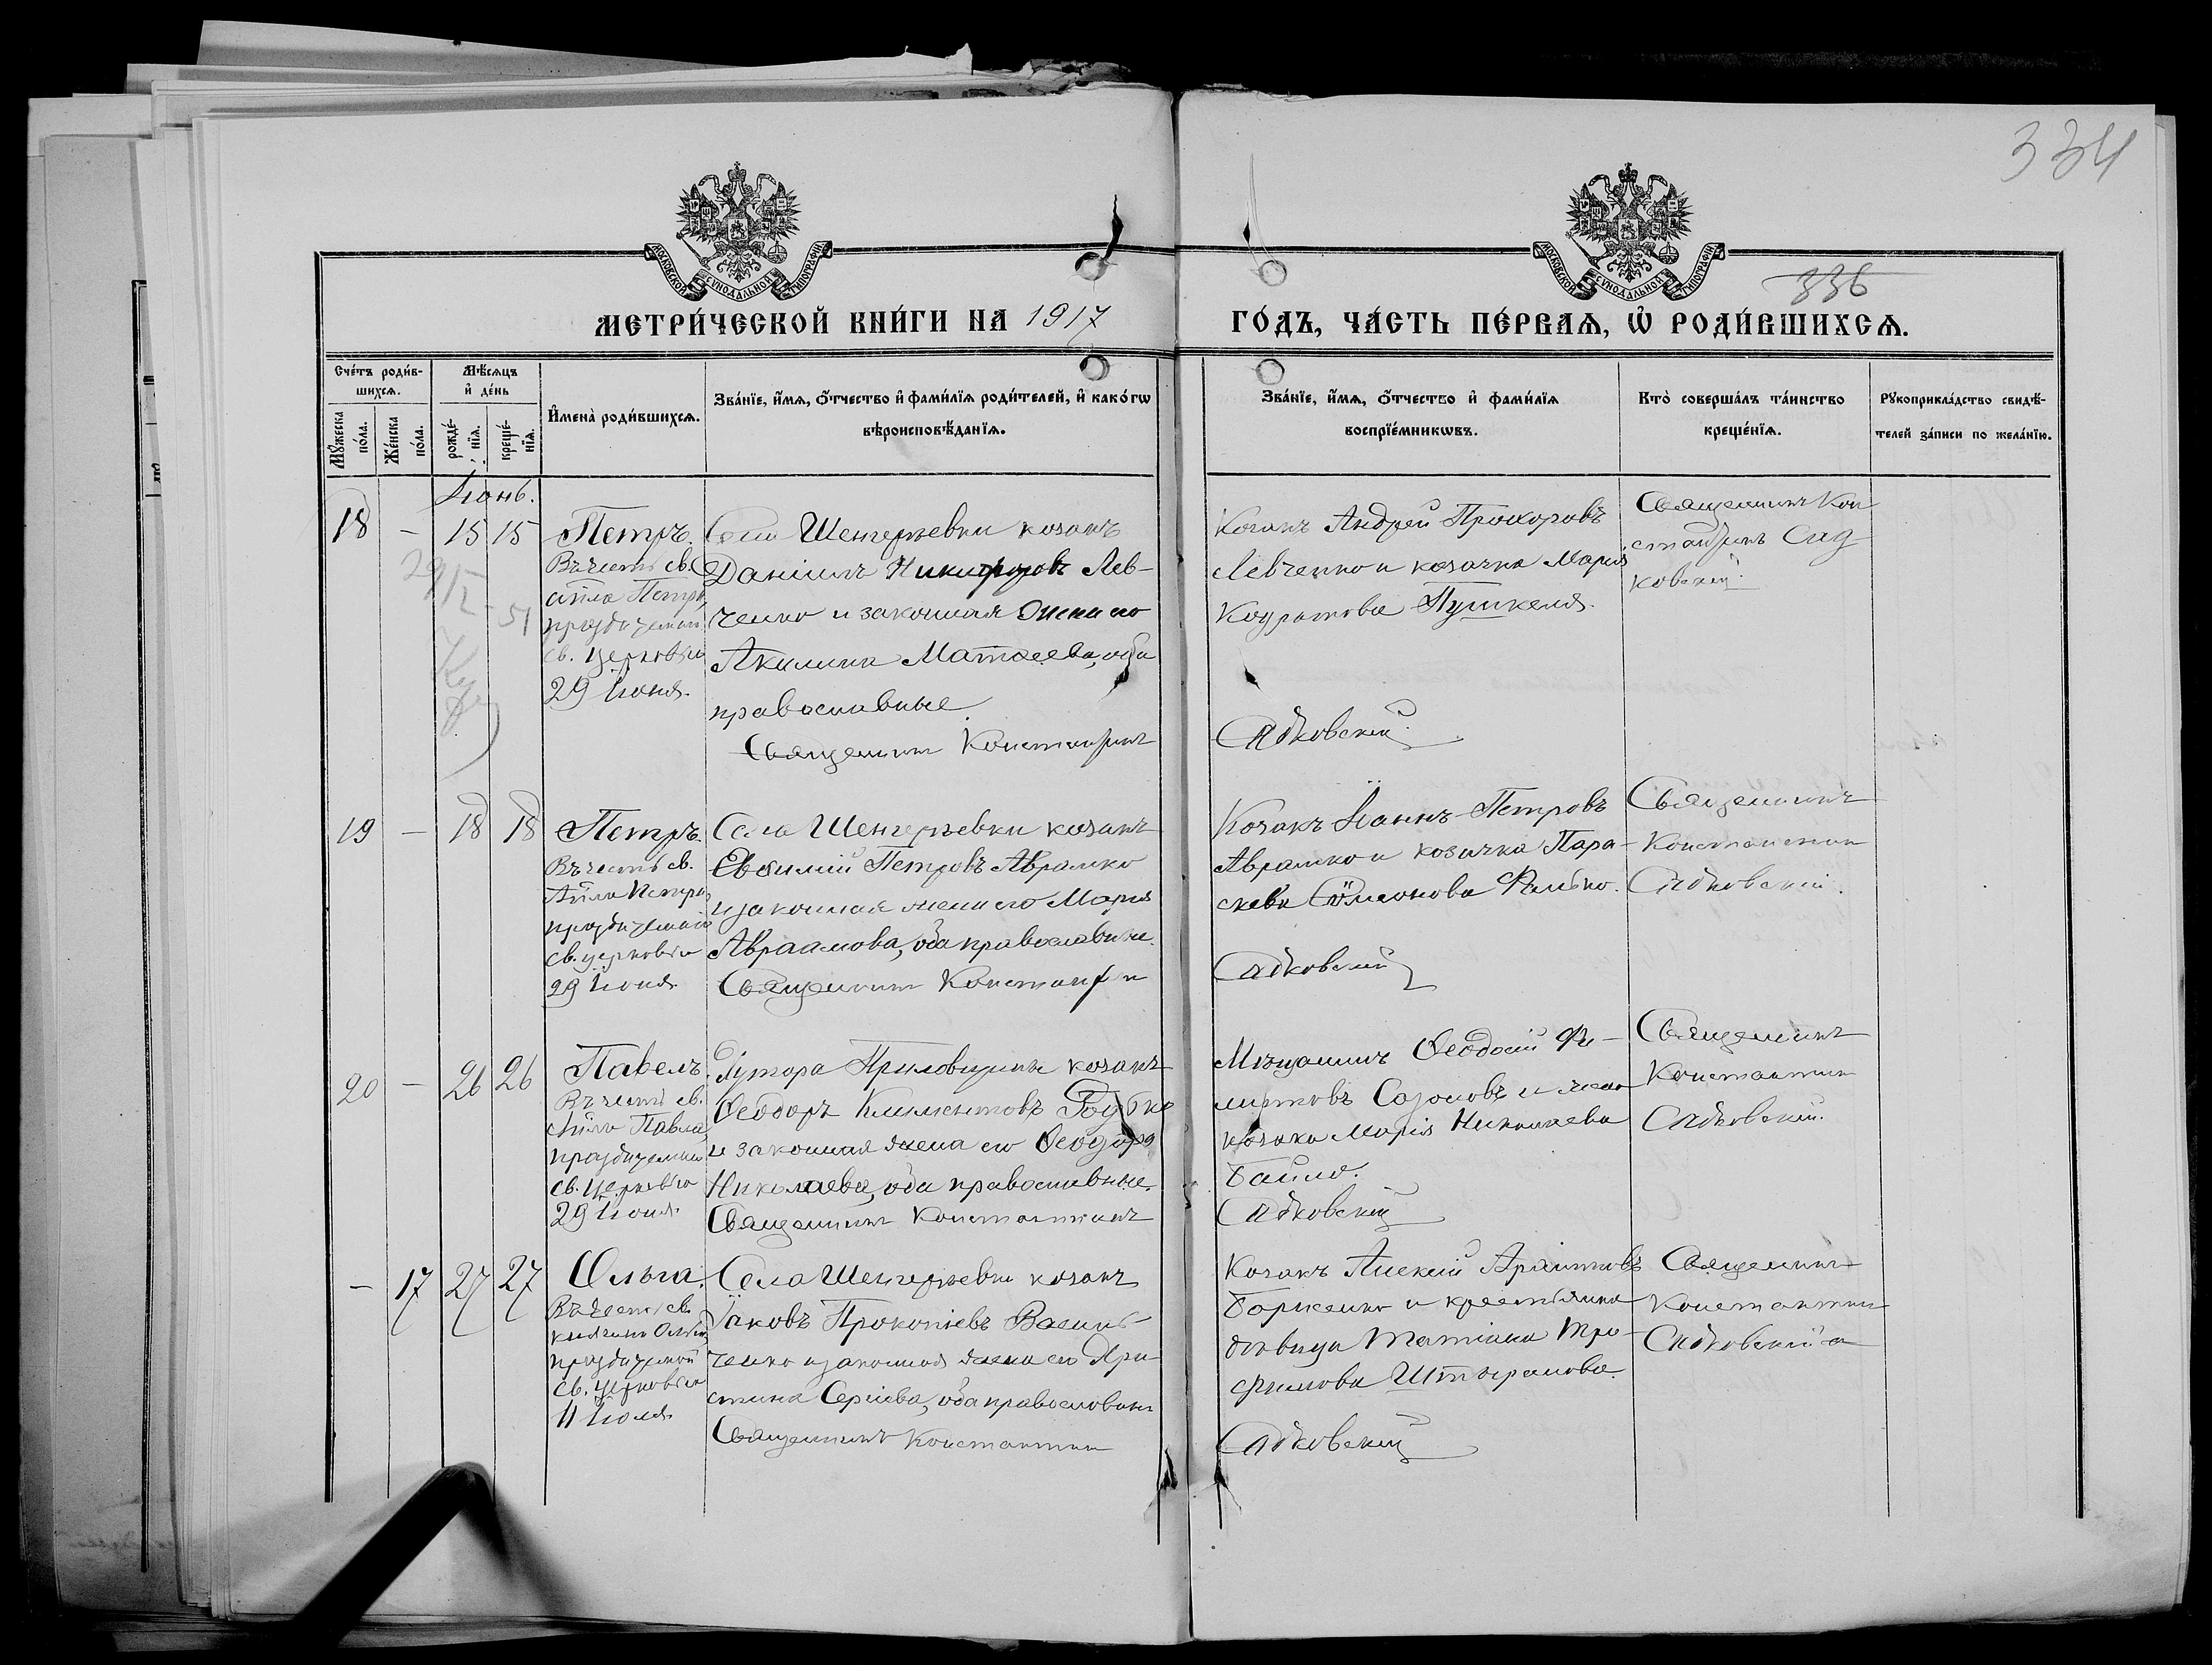 334
336
МОСКОВСКОЙ СѴНОДАЛЬНОЙ ТИПОГРАФІИ
МОСКОВСКОЙ СѴНОДАЛЬНОЙ ТИПОГРАФІИ
МЕТРИ́ЧЕСКОЙ КНИ́ГИ НА 1917
ГО́ДЪ, ЧА́СТЬ ПЕ́РВАѦ, Ѿ РОДИ́ВШИХСѦ.
Сче́тъ роди́в-
шихсѧ.
Мꙋ́жеска
по́ла.
Же́нска
по́ла.
Мѣ́сѧцъ
и҆ де́нь
рожде́-
нїѧ.
креще́-
нїѧ.
И҆мена̀ роди́вшихсѧ.
Зва́нїе, и҆́мѧ, ѻ҆́тчество и҆ фами́лїѧ роди́телей, и҆ како́гѡ
вѣроисповѣ́данїѧ.
Зва́нїе, и҆́мѧ, ѻ҆́тчество и҆ фами́лїѧ
воспрїе́мникѡвъ.
Кто̀ соверша́лъ та́инство
креще́нїѧ.
Рꙋкоприкла́дство свидѣ́-
телей за́писи по жела́нїю.
Іюнь.
18 – 15 15
Петръ.
Въ честь св.
ап̃ла Петра,
празднуемаго
св. церковію
29 Іюня.
Села Шенгеріевки козакъ
Даніилъ Никифоровъ Лев-
ченко и законная жена его
Акилина Матѳеева, оба
православные.
Священникъ Константинъ
Козакъ Андрей Прохоровъ
Левченко и козачка Марія
Кодратова Пушкеля.
Садковскій
Священникъ Кон
стантинъ Сад
ковскій
19 – 18 18
Петръ.
Въ честь св.
Ап̃ла Петра,
празднуемаго
св. церковію
29 Іюня
Села Шенгеріевки козакъ
Евѳимій Петровъ Аврамко
и законная жена его Марія
Авраамова, оба православные.
Священникъ Константин
Козакъ Іоаннъ Петровъ
Аврамко и козачка Пара-
скева Сѵмеонова
Садковскій
Священникъ
Константин
Садковскій.
20 – 26 26
Павелъ.
Въ честь св.
ап̃ла Павла,
празднуемаго
св. Церковію
29 Іюня
Хутора козакъ
Ѳеодоръ Климентовъ
и законная жена его Ѳеодора
Николаева, оба православные.
Священникъ Константинъ
Мѣщанинъ Ѳеодосій Фи-
липовъ Созоновъ и жена
козака Марія Николаева
Байло.
Садковскій
Священникъ
Константин
Садковскій.
– 17 27 27
Ольга.
Въ честь св.
княгини Ольги,
празднуемой
св. церковію
11 Іюля
Села Шенгеріевки козакъ
Іаковъ Прокопіевъ Василь-
ченко и законная жена его Хри-
стина Сергіева, оба православны
Священникъ Константин
Козакъ Алексій
Борисенко и крестьянка
вдовица Татіана Тро-
фимова
Садковскій
Священникъ
Константин
Садковскій